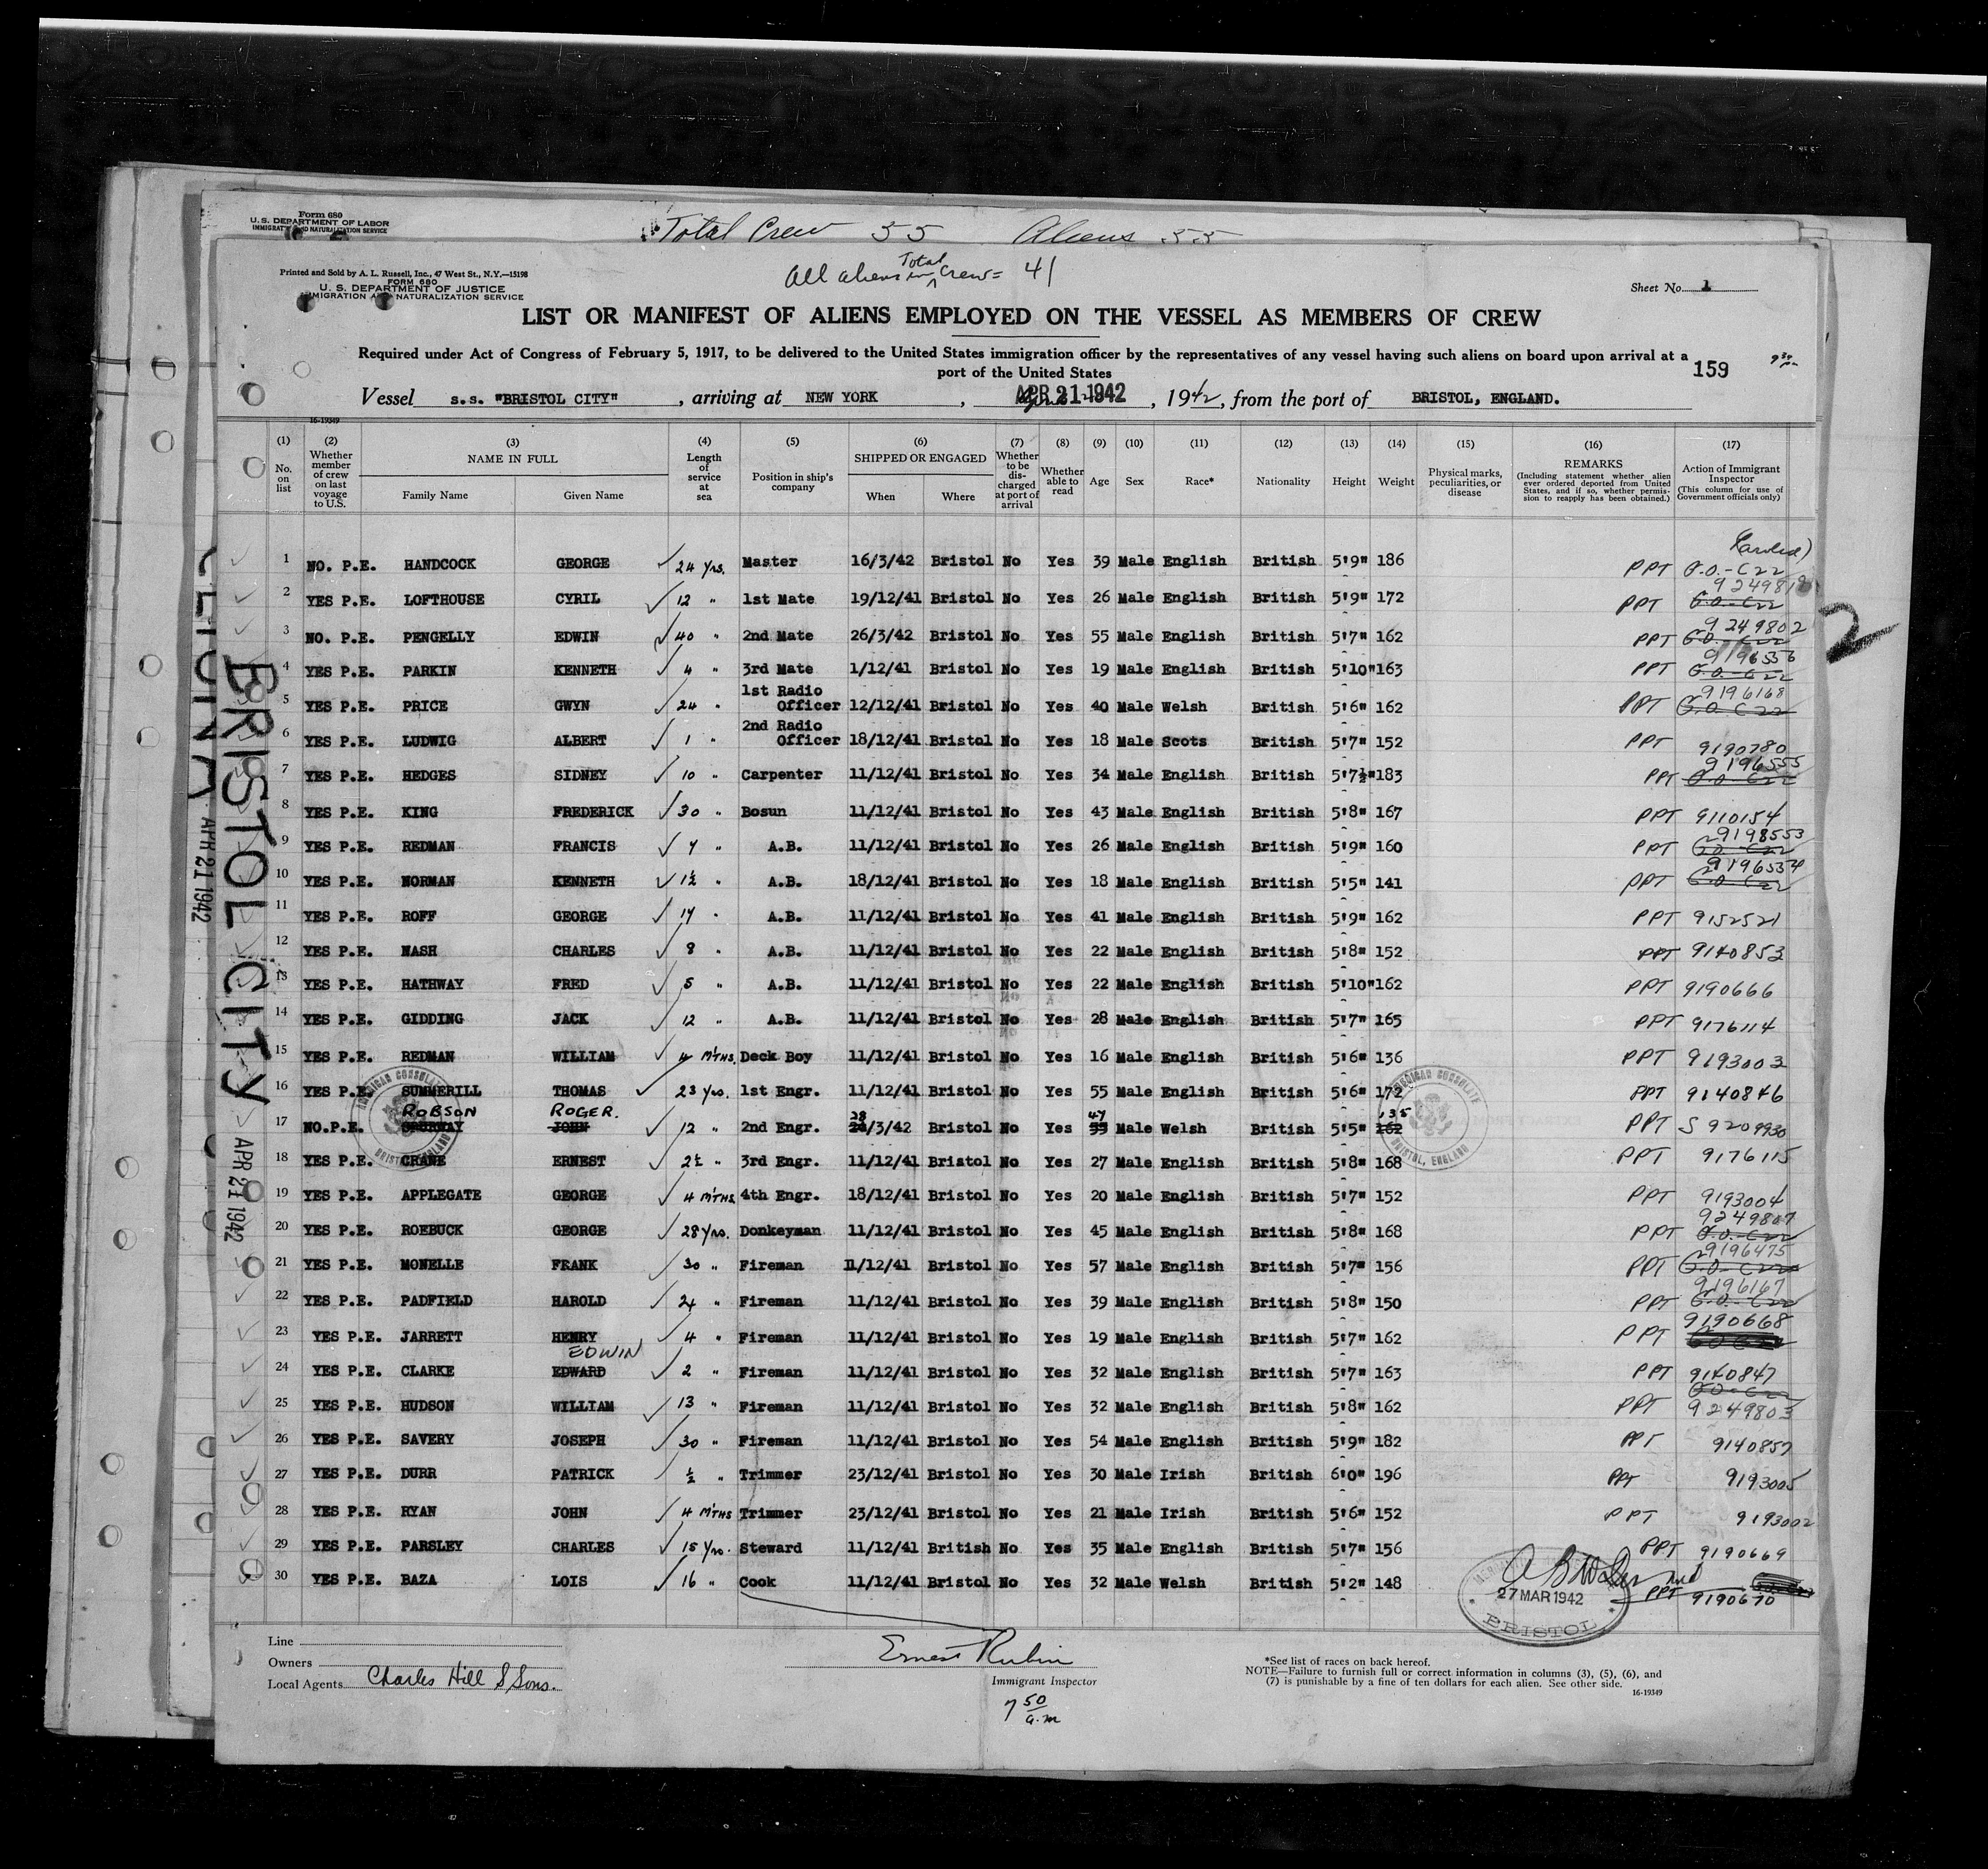 Form 680
U.S. DEPARTMENT OF LABOR
Total Crew 55 Aliens 55
All aliens in Total Crew = 41
Printed and Sold by A. L. Russell, Inc., 47 West St., N.Y.—15198
FORM 680
U. S. DEPARTMENT OF JUSTICE
IMMIGRATION AND NATURALIZATION SERVICE
Sheet No. 1
LIST OR MANIFEST OF ALIENS EMPLOYED ON THE VESSEL AS MEMBERS OF CREW
Required under Act of Congress of February 5, 1917, to be delivered to the United States immigration officer by the representatives of any vessel having such aliens on board upon arrival at a
port of the United States
159
Vessel s.s. "BRISTOL CITY", arriving at NEW YORK, APR 21 1942, 1942, from the port of BRISTOL, ENGLAND.
16-19349
(1) No. on list (2) Whether member of crew on last voyage to U.S. (3) NAME IN FULL Family Name Given Name (4) Length of service at sea (5) Position in ship's company (6) SHIPPED OR ENGAGED When Where (7) Whether to be discharged at port of arrival (8) Whether able to read (9) Age (10) Sex (11) Race* (12) Nationality (13) Height (14) Weight (15) Physical marks, peculiarities, or disease (16) REMARKS (Including statement whether alien ever ordered deported from United States, and if so, whether permission to reapply has been obtained.) (17) Action of Immigrant Inspector (This column for use of Government officials only)
1 NO. P.E. HANDCOCK GEORGE 24 yrs. Master 16/3/42 Bristol No Yes 39 Male English British 5'9" 186 PPT G.O.-C22
2 YES P.E. LOFTHOUSE CYRIL 12 " 1st Mate 19/12/41 Bristol No Yes 26 Male English British 5'9" 172 PPT G.O.-C22
3 NO. P.E. PENGELLY EDWIN 40 " 2nd Mate 26/3/42 Bristol No Yes 55 Male English British 5'7" 162 PPT G.O.-C22 9249802
4 YES P.E. PARKIN KENNETH 4 " 3rd Mate 1/12/41 Bristol No Yes 19 Male English British 5'10" 163 PPT G.O.-C22 9196556
5 YES P.E. PRICE GWYN 24 " 1st Radio Officer 12/12/41 Bristol No Yes 40 Male Welsh British 5'6" 162 PPT G.O.-C22 9196168
6 YES P.E. LUDWIG ALBERT 1 " 2nd Radio Officer 18/12/41 Bristol No Yes 18 Male Scots British 5'7" 152 PPT 9190780
7 YES P.E. HEDGES SIDNEY 10 " Carpenter 11/12/41 Bristol No Yes 34 Male English British 5'7½" 183 PPT G.O.-C22 9196555
8 YES P.E. KING FREDERICK 30 " Bosun 11/12/41 Bristol No Yes 43 Male English British 5'8" 167 PPT 9110154
9 YES P.E. REDMAN FRANCIS 7 " A.B. 11/12/41 Bristol No Yes 26 Male English British 5'9" 160 PPT G.O.-C22 9198553
10 YES P.E. NORMAN KENNETH 1½ " A.B. 18/12/41 Bristol No Yes 18 Male English British 5'5" 141 PPT G.O.-C22 9196534
11 YES P.E. ROFF GEORGE 17 " A.B. 11/12/41 Bristol No Yes 41 Male English British 5'9" 162 PPT 9152521
12 YES P.E. NASH CHARLES 8 " A.B. 11/12/41 Bristol No Yes 22 Male English British 5'8" 152 PPT 9140853
13 YES P.E. HATHWAY FRED 5 " A.B. 11/12/41 Bristol No Yes 22 Male English British 5'10" 162 PPT 9190666
14 YES P.E. GIDDING JACK 12 " A.B. 11/12/41 Bristol No Yes 28 Male English British 5'7" 165 PPT 9176114
15 YES P.E. REDMAN WILLIAM 4 MTHS. Deck Boy 11/12/41 Bristol No Yes 16 Male English British 5'6" 136 PPT 9193003
16 YES P.E. SUMMERILL THOMAS 23 yrs. 1st Engr. 11/12/41 Bristol No Yes 55 Male English British 5'6" 172 PPT 9140846
17 NO.P.E. ROBSON ROGER. JOHN 12 " 2nd Engr. 28/3/42 Bristol No Yes 47 Male Welsh British 5'5" 135 262 PPT S 9209930
18 YES P.E. CRANE ERNEST 2½ " 3rd Engr. 11/12/41 Bristol No Yes 27 Male English British 5'8" 168 PPT 9176115
19 YES P.E. APPLEGATE GEORGE 4 MTHS. 4th Engr. 18/12/41 Bristol No Yes 20 Male English British 5'7" 152 PPT 9193004
20 YES P.E. ROEBUCK GEORGE 28 yrs. Donkeyman 11/12/41 Bristol No Yes 45 Male English British 5'8" 168 PPT G.O.-C22 9249807
21 YES P.E. MONELLE FRANK 30 " Fireman 11/12/41 Bristol No Yes 57 Male English British 5'7" 156 PPT G.O.-C22 9196475
22 YES P.E. PADFIELD HAROLD 24 " Fireman 11/12/41 Bristol No Yes 39 Male English British 5'8" 150 PPT G.O.-C22 9196167
23 YES P.E. JARRETT HENRY 4 " Fireman 11/12/41 Bristol No Yes 19 Male English British 5'7" 162 PPT 9190668
24 YES P.E. CLARKE EDWIN EDWARD 2 " Fireman 11/12/41 Bristol No Yes 32 Male English British 5'7" 163 PPT 9140847
25 YES P.E. HUDSON WILLIAM 13 " Fireman 11/12/41 Bristol No Yes 32 Male English British 5'8" 162 PPT G.O.-C22 9249803
26 YES P.E. SAVERY JOSEPH 30 " Fireman 11/12/41 Bristol No Yes 54 Male English British 5'9" 182 PPT 9140857
27 YES P.E. DURR PATRICK ½ " Trimmer 23/12/41 Bristol No Yes 30 Male Irish British 6'0" 196 PPT 9193005
28 YES P.E. RYAN JOHN 4 MTHS Trimmer 23/12/41 Bristol No Yes 21 Male Irish British 5'6" 152 PPT 9193002
29 YES P.E. PARSLEY CHARLES 15 yrs. Steward 11/12/41 British No Yes 35 Male English British 5'7" 156 PPT 9190669
30 YES P.E. BAZA LOIS 16 " Cook 11/12/41 Bristol No Yes 32 Male Welsh British 5'2" 148 PPT 9190670
BRISTOL CITY
APR 21 1942
APR 21 1942
2
AMERICAN CONSULATE
BRISTOL, ENGLAND
AMERICAN CONSULATE
BRISTOL, ENGLAND
27 MAR 1942
BRISTOL
Line
Owners
Local Agents Charles Hill & Sons.
Ernest Rubin
Immigrant Inspector
7 50 a.m
*See list of races on back hereof.
NOTE—Failure to furnish full or correct information in columns (3), (5), (6), and
(7) is punishable by a fine of ten dollars for each alien. See other side.
16-19349